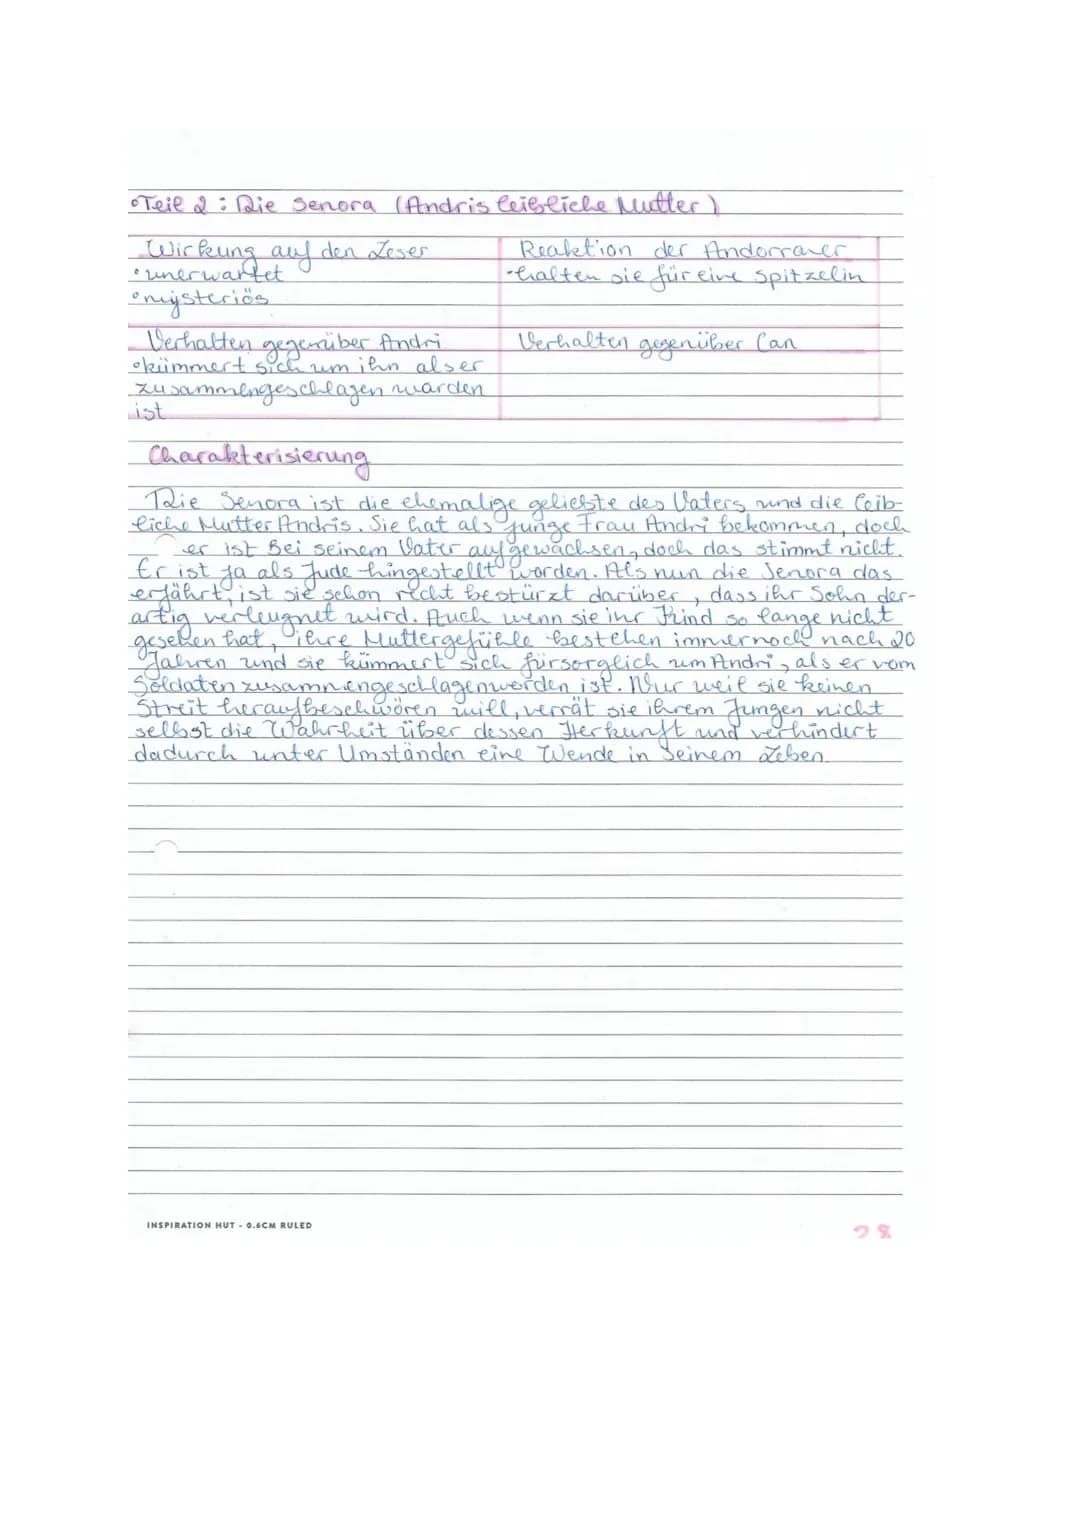 •Teil 2 : Die Senora (Andris leibliche Mutter)
Wirkung auf den Leser
• unerwartet
• mysteriös
Reaktion der Andorraner
-halten sie für eine spitzelin
Verhalten gegenüber Andri
•kümmert sich um ihn als er
zusammengeschlagen warden
ist
Verhalten gegenüber Can
Charakterisierung
Die Senora ist die ehemalige geliebte des Vaters und die leib-
liche Mutter Andris. Sie hat als junge Frau Andri bekommen, doch
er ist Bei seinem Vater aufgewachsen, doch das stimmt nicht.
Er ist ja als Jude hingestellt worden. Als nun die Senora das
erfährt, ist sie schon recht bestürzt darüber, dass ihr Sohn der-
artig verleugnet wird. Auch wenn sie ihr Kind so lange nicht
gesehen hat, ihre Muttergefühle bestehen immernoch nach 20
Jahren und sie kümmert sich fürsorglich um Andri, als er vom
Soldaten zusammengeschlagenwerden ist. Nur weil sie keinen
Streit heraufbeschwören will, verrät sie ihrem Jungen nicht
selbst die Wahrheit über dessen Herkunft und verhindert
dadurch unter Umständen eine Wende in Seinem Leben.
INSPIRATION HUT - 0.6CM RULED
28